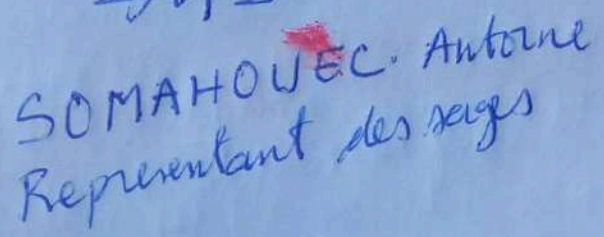 SOMAHOUEC. Antoine
Representant des sages